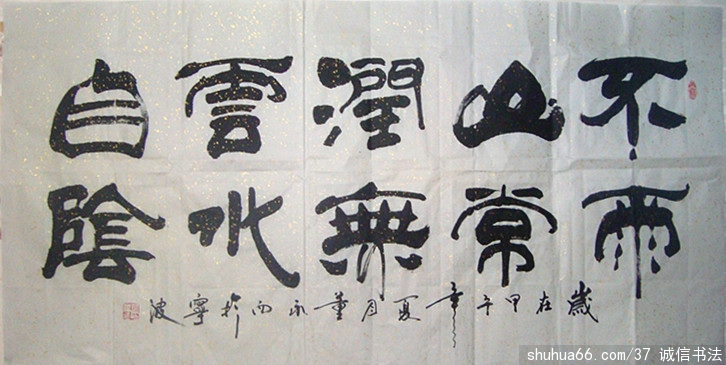 不雨
山常
潤無
雲水
自陰
歲在甲午年夏月董永西於寧波
shuhua66.com/37 诚信书法